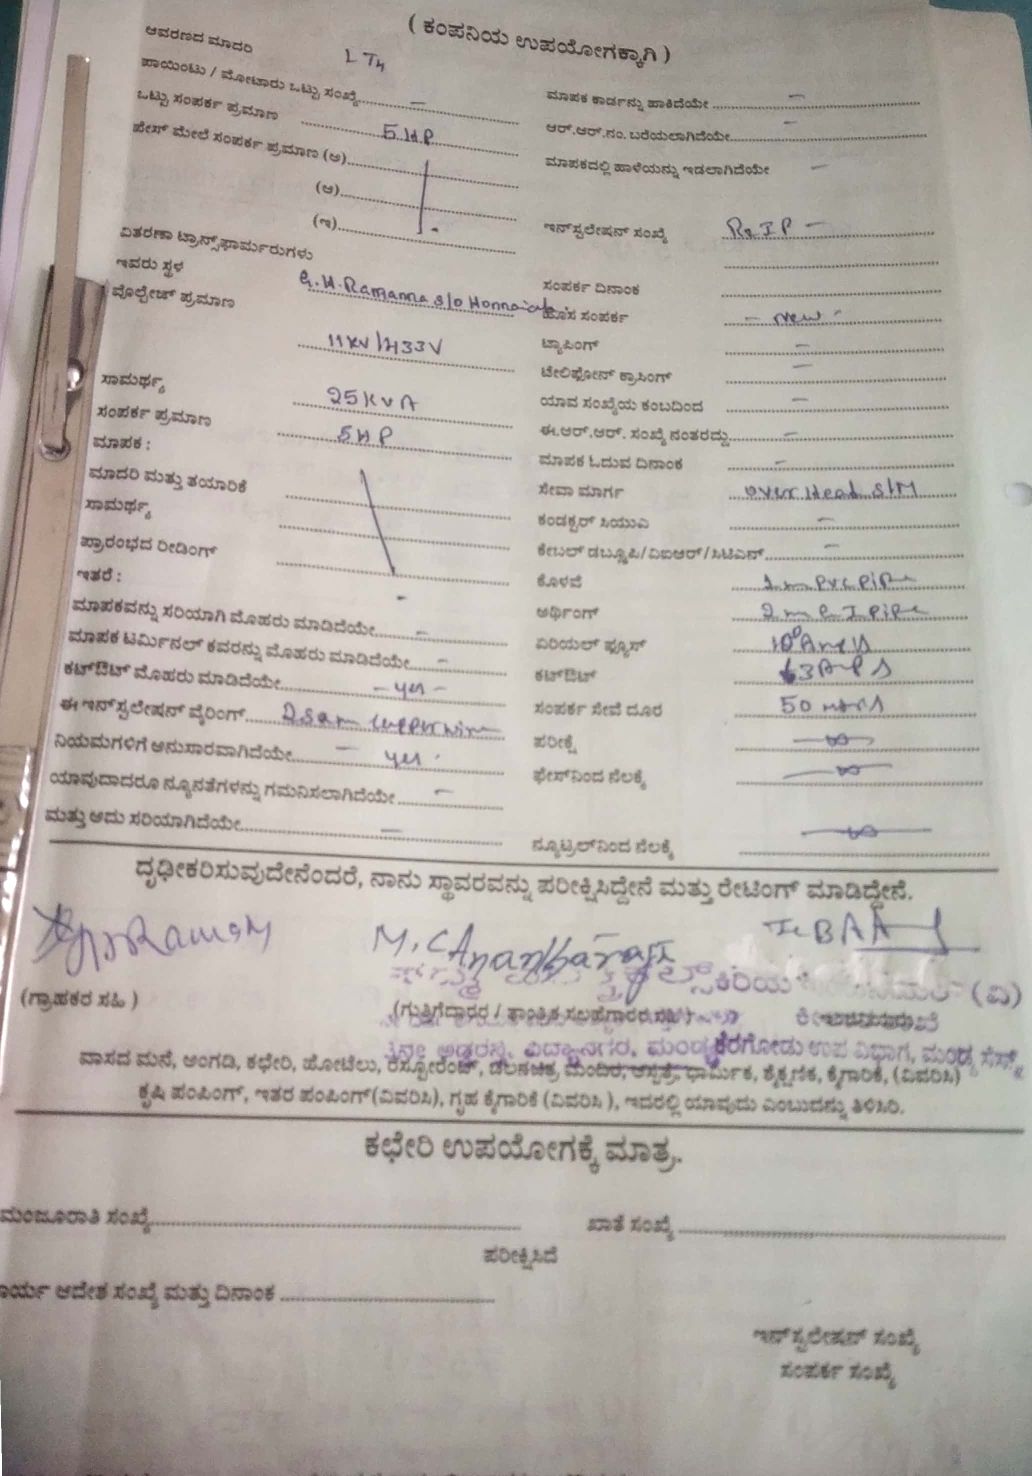 ( ಕಂಪನಿಯ ಉಪಯೋಗಕ್ಕಾಗಿ )
ಆವರಣದ ಮಾದರಿ LT4
ಪಾಯಿಂಟು / ಮೋಟಾರು ಒಟ್ಟು ಸಂಖ್ಯೆ –
ಒಟ್ಟು ಸಂಪರ್ಕ ಪ್ರಮಾಣ 5 H.P
ಫೇಸ್ ಮೇಲೆ ಸಂಪರ್ಕ ಪ್ರಮಾಣ (ಅ)
(ಆ)
(ಇ)
ವಿತರಣಾ ಟ್ರಾನ್ಸ್‌ಫಾರ್ಮರುಗಳು
ಇವರು ಸ್ಥಳ G.H. Ramanna S/o
ವೋಲ್ಟೇಜ್ ಪ್ರಮಾಣ 11KV/433V
ಸಾಮರ್ಥ್ಯ 25KVA
ಸಂಪರ್ಕ ಪ್ರಮಾಣ 5HP
ಮಾಪಕ :
ಮಾದರಿ ಮತ್ತು ತಯಾರಿಕೆ
ಸಾಮರ್ಥ್ಯ
ಪ್ರಾರಂಭದ ರೀಡಿಂಗ್
ಇತರೆ :
ಮಾಪಕವನ್ನು ಸರಿಯಾಗಿ ಮೊಹರು ಮಾಡಿದೆಯೇ –
ಮಾಪಕ ಟರ್ಮಿನಲ್ ಕವರನ್ನು ಮೊಹರು ಮಾಡಿದೆಯೇ –
ಕಟ್‌ಔಟ್ ಮೊಹರು ಮಾಡಿದೆಯೇ – yes –
ಈ ಇನ್‌ಸ್ಟಲೇಷನ್ ವೈರಿಂಗ್
ನಿಯಮಗಳಿಗೆ ಅನುಸಾರವಾಗಿದೆಯೇ – yes
ಯಾವುದಾದರೂ ನ್ಯೂನತೆಗಳನ್ನು ಗಮನಿಸಲಾಗಿದೆಯೇ –
ಮತ್ತು ಅದು ಸರಿಯಾಗಿದೆಯೇ –
ಮಾಪಕ ಕಾರ್ಡನ್ನು ಹಾಕಿದೆಯೇ –
ಆರ್.ಆರ್.ನಂ. ಬರೆಯಲಾಗಿದೆಯೇ –
ಮಾಪಕದಲ್ಲಿ ಹಾಳೆಯನ್ನು ಇಡಲಾಗಿದೆಯೇ –
ಇನ್‌ಸ್ಟಲೇಷನ್ ಸಂಖ್ಯೆ
ಸಂಪರ್ಕ ದಿನಾಂಕ
ಹೊಸ ಸಂಪರ್ಕ – New
ಟ್ಯಾಪಿಂಗ್ –
ಟೆಲಿಫೋನ್ ಕ್ರಾಸಿಂಗ್ –
ಯಾವ ಸಂಖ್ಯೆಯ ಕಂಬದಿಂದ –
ಈ.ಆರ್.ಆರ್. ಸಂಖ್ಯೆ ನಂತರದ್ದು –
ಮಾಪಕ ಓದುವ ದಿನಾಂಕ –
ಸೇವಾ ಮಾರ್ಗ over Head S/M
ಕಂಡಕ್ಟರ್ ಸಿಯುವಿ –
ಕೇಬಲ್ ಡಬ್ಲ್ಯೂಪಿ/ವಿಐಆರ್/ಸಿಟಿಎಸ್ –
ಕೊಳವೆ 2m PVC PiPe
ಅರ್ಥಿಂಗ್ 2m G I PiPe
ಏರಿಯಲ್ ಫ್ಯೂಸ್
ಕಟ್‌ಔಟ್ 63 APS
ಸಂಪರ್ಕ ಸೇವೆ ದೂರ 50
ಪರೀಕ್ಷೆ
ಫೇಸ್‌ನಿಂದ ನೆಲಕ್ಕೆ
ನ್ಯೂಟ್ರಲ್‌ನಿಂದ ನೆಲಕ್ಕೆ
ದೃಢೀಕರಿಸುವುದೇನೆಂದರೆ, ನಾನು ಸ್ಥಾವರವನ್ನು ಪರೀಕ್ಷಿಸಿದ್ದೇನೆ ಮತ್ತು ರೇಟಿಂಗ್ ಮಾಡಿದ್ದೇನೆ.
(ಗ್ರಾಹಕರ ಸಹಿ )
(ಗುತ್ತಿಗೆದಾರರ / ತಾಂತ್ರಿಕ ಸಲಹೆಗಾರರ ಸಹಿ )
ಕಿರಿಯ (ವಿ)
ವಿದ್ಯಾನಗರ, ಮಂಡ್ಯ
ಕೆರಗೋಡು ಉಪ ವಿಭಾಗ, ಮಂಡ್ಯ
ವಾಸದ ಮನೆ, ಅಂಗಡಿ, ಕಛೇರಿ, ಹೋಟೆಲು, ರೆಸ್ಟೋರೆಂಟ್, ಚಲನಚಿತ್ರ ಮಂದಿರ, ಆಸ್ಪತ್ರೆ, ಧಾರ್ಮಿಕ, ಶೈಕ್ಷಣಿಕ, ಕೈಗಾರಿಕೆ, (ವಿವರಿಸಿ)
ಕೃಷಿ ಪಂಪಿಂಗ್, ಇತರ ಪಂಪಿಂಗ್(ವಿವರಿಸಿ), ಗೃಹ ಕೈಗಾರಿಕೆ (ವಿವರಿಸಿ ), ಇದರಲ್ಲಿ ಯಾವುದು ಎಂಬುದನ್ನು ತಿಳಿಸಿರಿ.
ಕಛೇರಿ ಉಪಯೋಗಕ್ಕೆ ಮಾತ್ರ.
ಮಂಜೂರಾತಿ ಸಂಖ್ಯೆ
ಖಾತೆ ಸಂಖ್ಯೆ
ಪರೀಕ್ಷಿಸಿದೆ
ಆದೇಶ ಸಂಖ್ಯೆ ಮತ್ತು ದಿನಾಂಕ
ಇನ್‌ಸ್ಟಲೇಷನ್ ಸಂಖ್ಯೆ
ಸಂಪರ್ಕ ಸಂಖ್ಯೆ